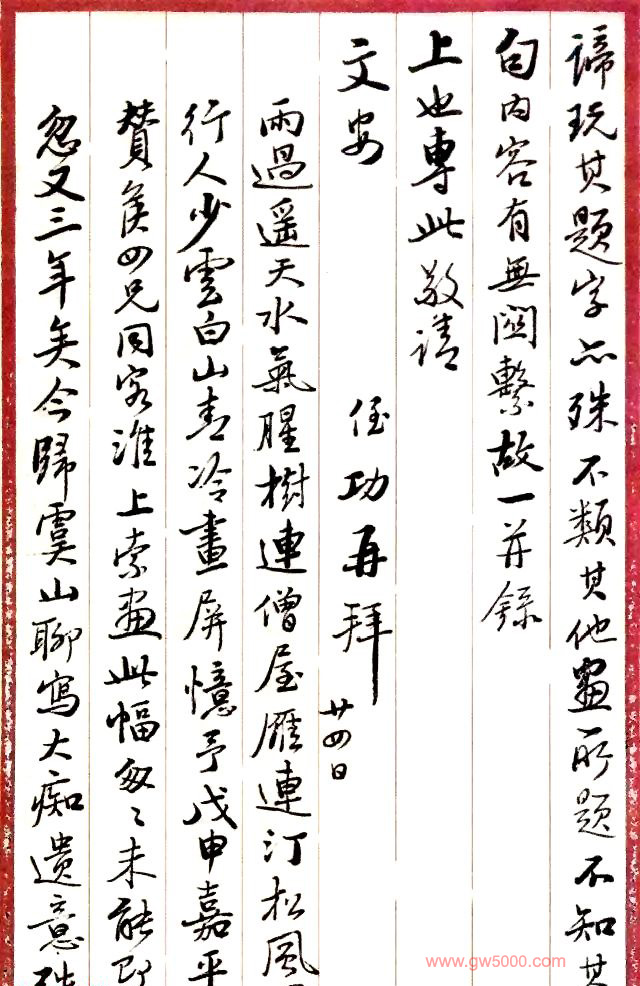 谛玩其题字亦殊不類其他畫所題不知其
句内容有無闗繫故一并録
上也專此敬請
文安
侄功再拜
廿四日
雨過遥天水氣腥樹連僧屋雁連汀松風
行人少雲白山青冷畫屏憶予戊申嘉平
贊侯四兄同客淮上索畫此幅匆〻未能即
忽又三年矣今歸虞山聊寫大痴遺意
www.gw5000.com